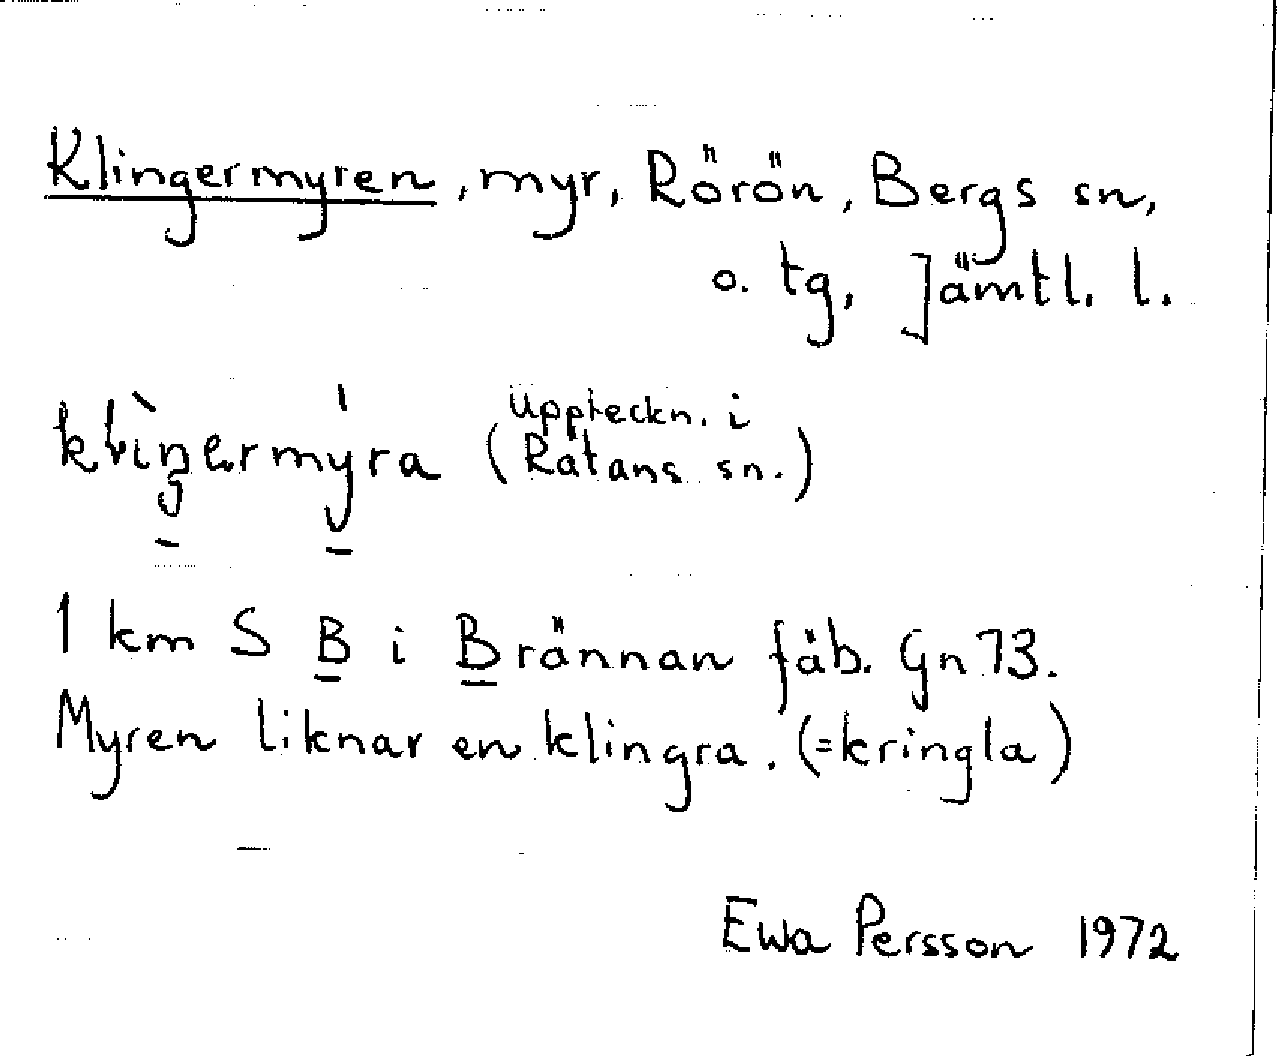 Klingermyren, myr, Rörön, Bergs sn,
o. tg, Jämtl. l.
(Uppteckn. i
Rätans sn.)
1 km S B i Brännan fäb. Gn 73.
Myren liknar en klingra. (=kringla)
Ewa Persson 1972